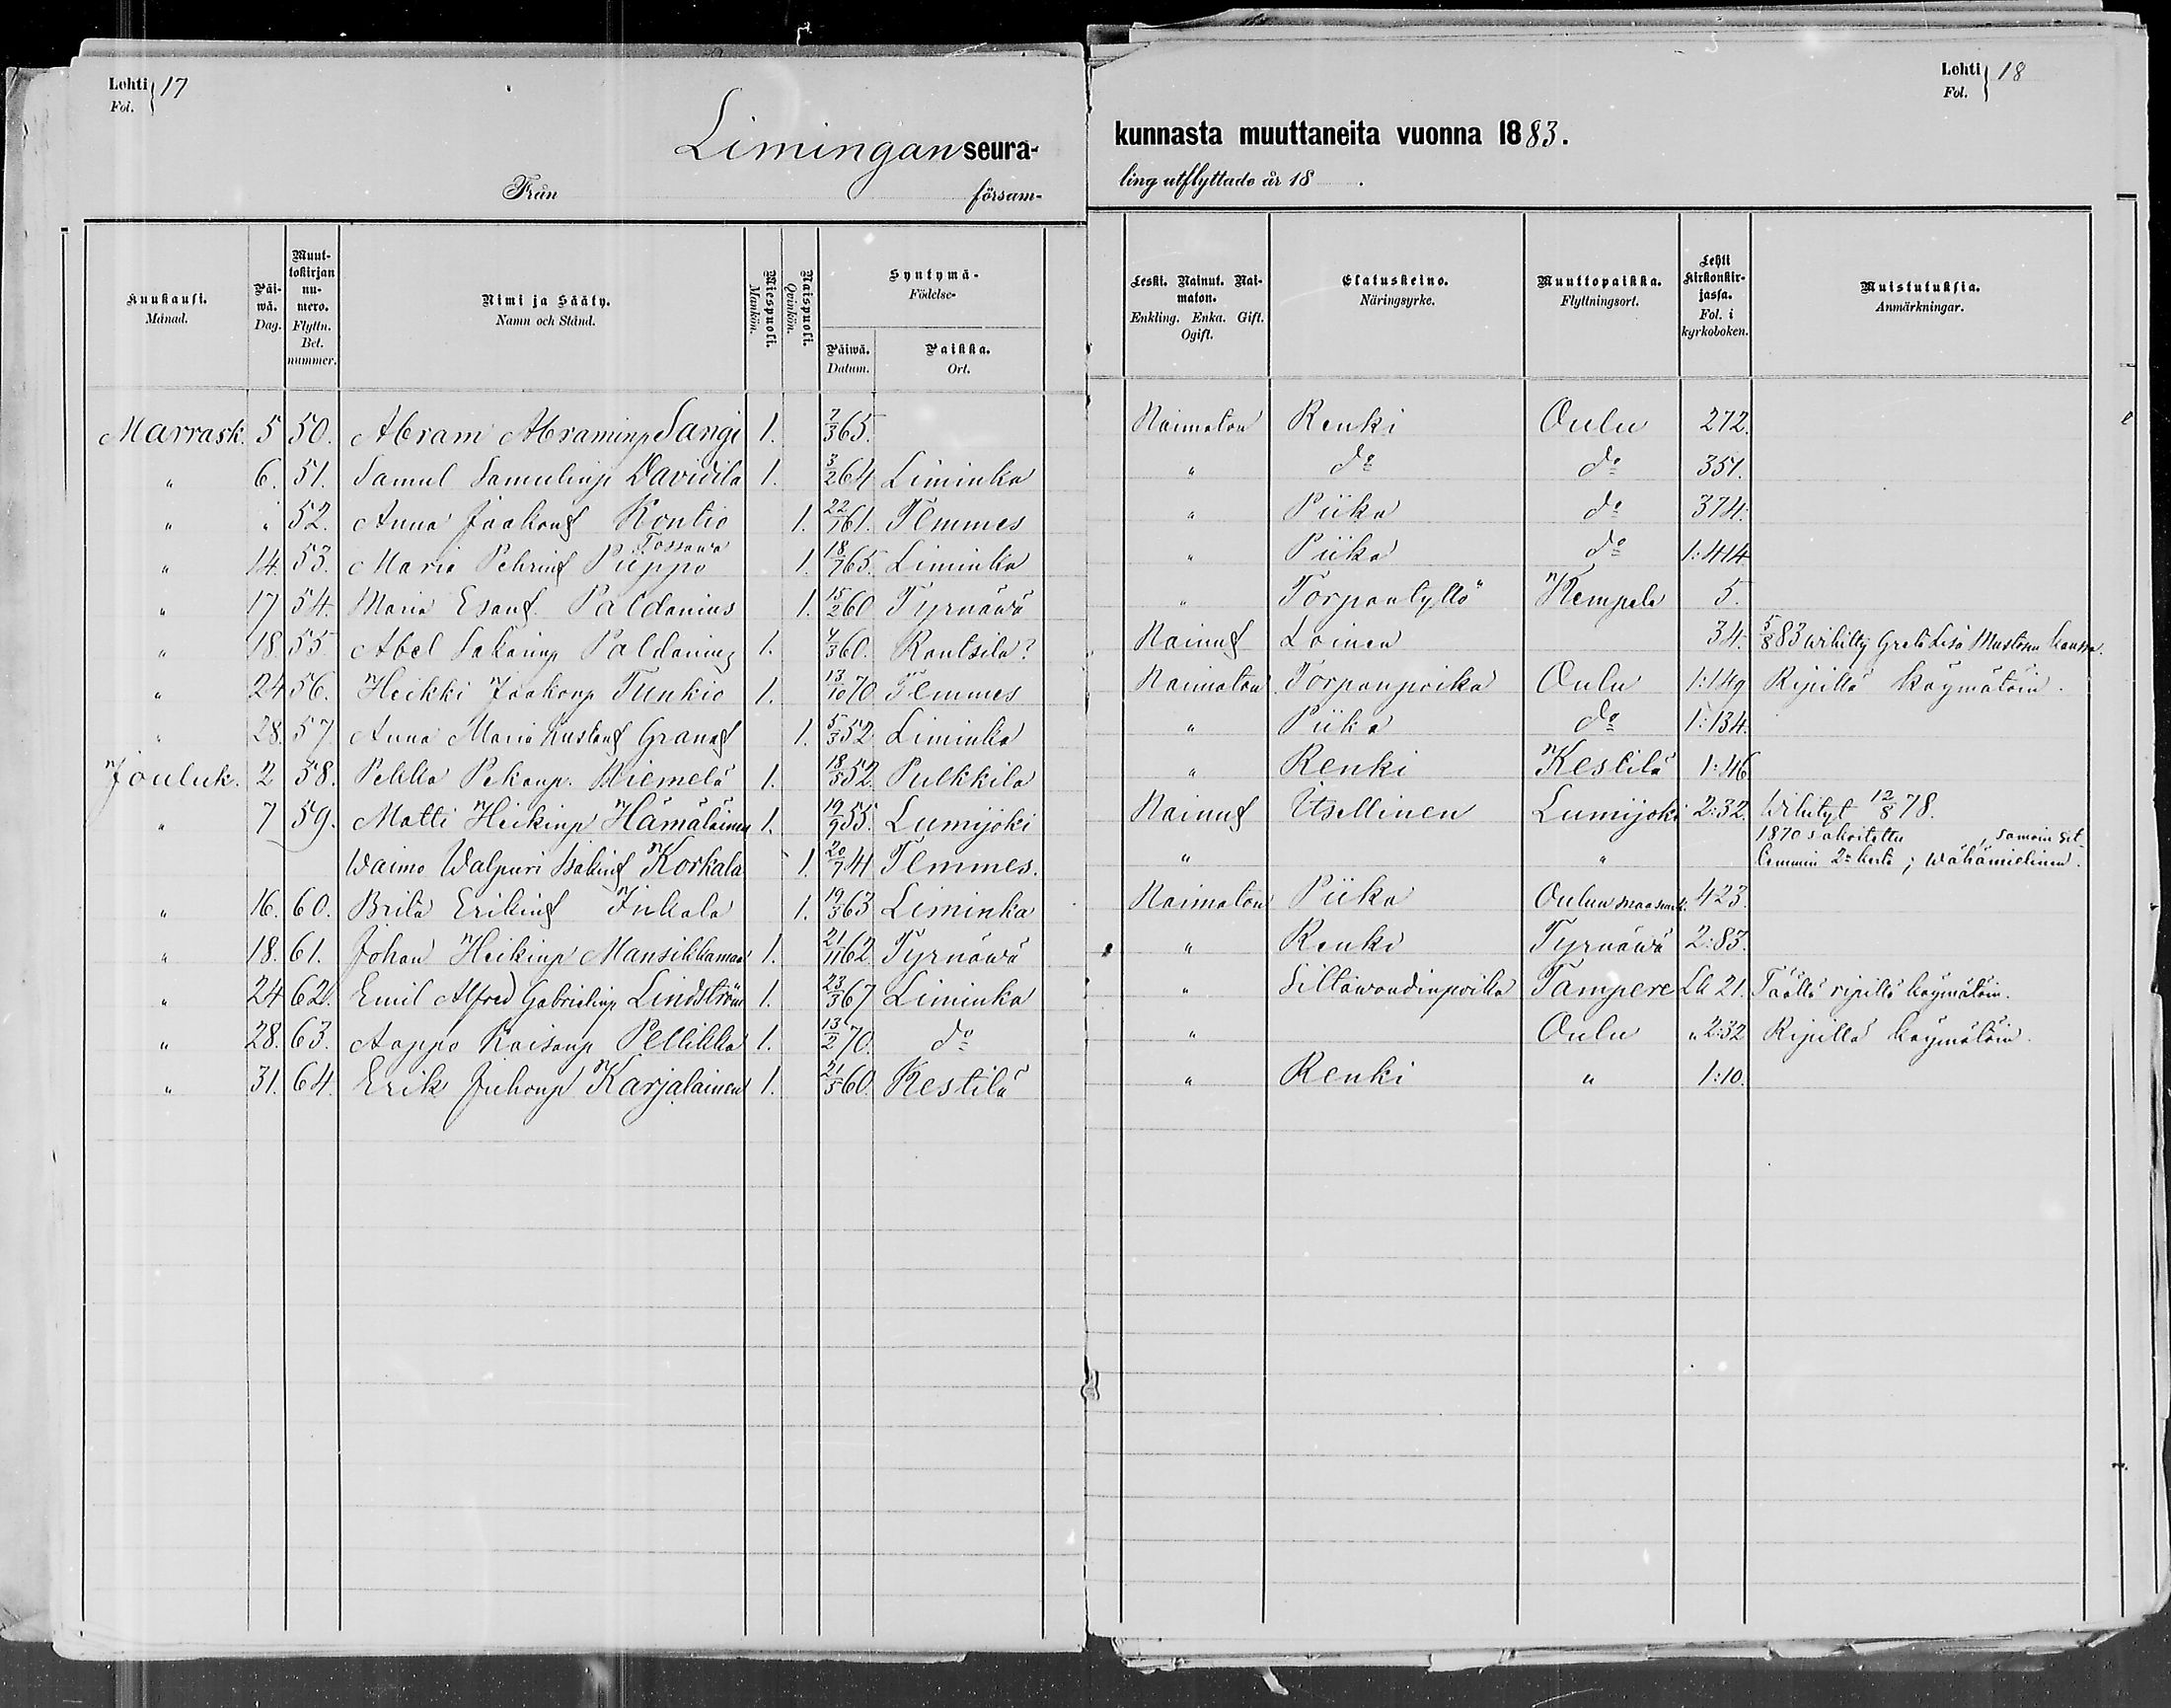 Lehti 17
Fol.
Limingan seura-
Från försam-
Kuukausi. Månad. Päi-wä. Dag. Muut-tokirjan nu-mero. Flyttn. Bet. nummer. Nimi ja Sääty. Namn och Stånd. Miespuoli. Mankön. Naispuoli. Qvinkön. Syntymä- Födelse- Päiwä. Datum. Paikka. Ort.
Marrask. 5 50. Abram Abraminp Sangi 1. 2/3 65.
" 6. 51. Samul Samulinp Davidila 1. 3/2 64 Liminka
" " 52. Anna Jaakont Kontio 1. 22/1 61. Temmes
Tossawa
" 14. 53. Maria Pehrint Pieppo 1. 18/7 65. Liminka
" 17 54. Maria Esant Paldanius 1. 15/2 60 Tyrnäwä
" 18. 55. Abel Sakarinp Paldanius 1. 4/3 60. Rantsila?
" 24 56. Heikki Jaakonp Tunkio 1. 13/10 70 Temmes
" 28. 57. Anna Maria Kustant Granat 1. 5/3 52. Liminka
Jouluk. 2 58. Pekka Pekanp. Niemelä 1. 18/5 52. Pulkkila
" 7 59. Matti Heikinp Hämäläinen 1. 19/9 55. Lumijoki
Waimo Walpuri Isakint Korkala 1. 20/7 41 Temmes.
" 16. 60. Brita Erikint Inkala 1. 19/3 63 Liminka
" 18. 61. Johan Heikinp Mansikkamaa 1. 21/11 62 Tyrnäwä
" 24 62. Emil Alfred Gabrielinp Lindström 1. 23/3 67 Liminka
" 28. 63. Aappo Kaisanp Pellikka 1. 13/2 70. do
" 31. 64. Erik Juhonp Karjalainen 1. 21/5 60. Kestilä
Lehti 18
Fol.
kunnasta muuttaneita vuonna 1883.
ling utflyttade år 18 .
Leski. Nainut. Nai-maton. Enkling. Enka. Gift. Ogift. Elatuskeino. Näringsyrke. Muuttopaikka. Flyttningsort. Lehti Kirkonkir-jassa. Fol. i kyrkoboken. Muistutuksia. Anmärkningar.
Naimaton Renki Oulu 272.
" do do 351.
" Piika do 374.
" Piika do 1:414
" Torpantyttö Kempele 5.
Nainut Loinen 34. 5/8 83 wihitty Greta Lisa Mustosen kanssa.
Naimaton Torpanpoika Oulu 1:149 Ripillä käymätöin.
" Piika do 1:134.
" Renki Kestilä 1:46
Nainut Itsellinen Lumijoki 2:32. Wihityt 12/8 78.
1870 sakoitettu , samoin sit-
" " temmin 2:n kerta; wähämielinen.
Naimaton Piika Oulun maaseurk. 423.
" Renki Tyrnäwä 2:83.
" Siltawoudinpoika Tampere Lk 21. Täällä ripillä käymätöin.
" Oulu " 2:32 Ripillä käymätöin.
" Renki " 1:10.